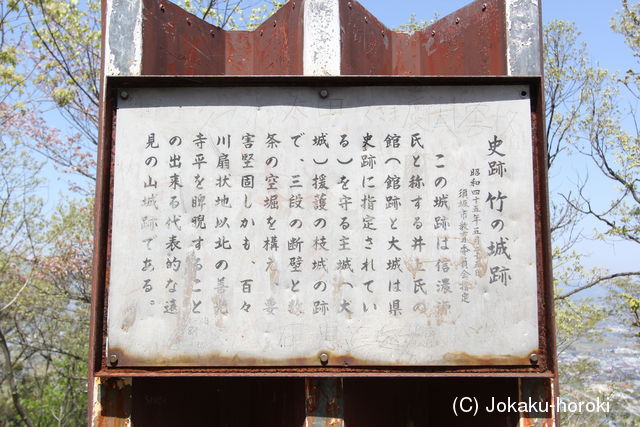 史跡 竹の城跡
昭和四十五年五月
須坂市教育委員会指定
この城跡は信濃源
氏と称する井上氏の
館(館跡と大城は県
史跡に指定されてい
る)を守る主城(大
城)援護の枝城の跡
で、三段の断壁と数
条の空堀を構え、要
害堅固しかも、百々
川扇状地以北の善光
寺平を睥睨すること
の出来る代表的な遠
見の山城跡である。
(C) Jokaku-horoki